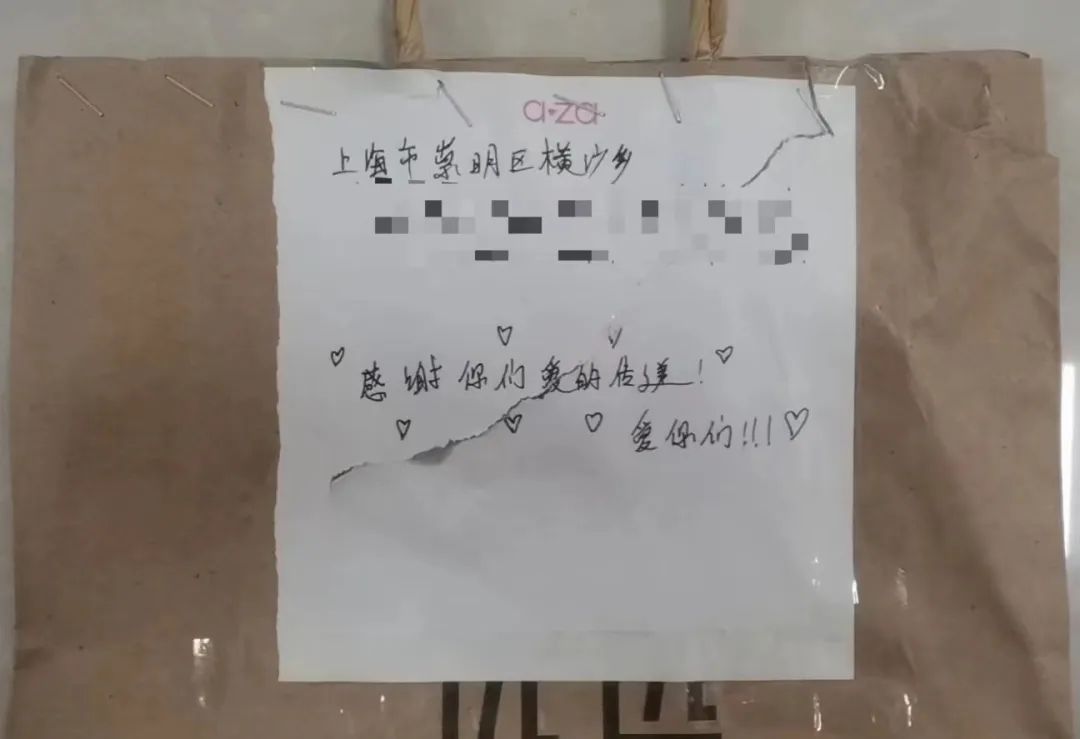 a·za
上海市崇明区横沙乡
感谢你们爱的传递！
爱你们!!!